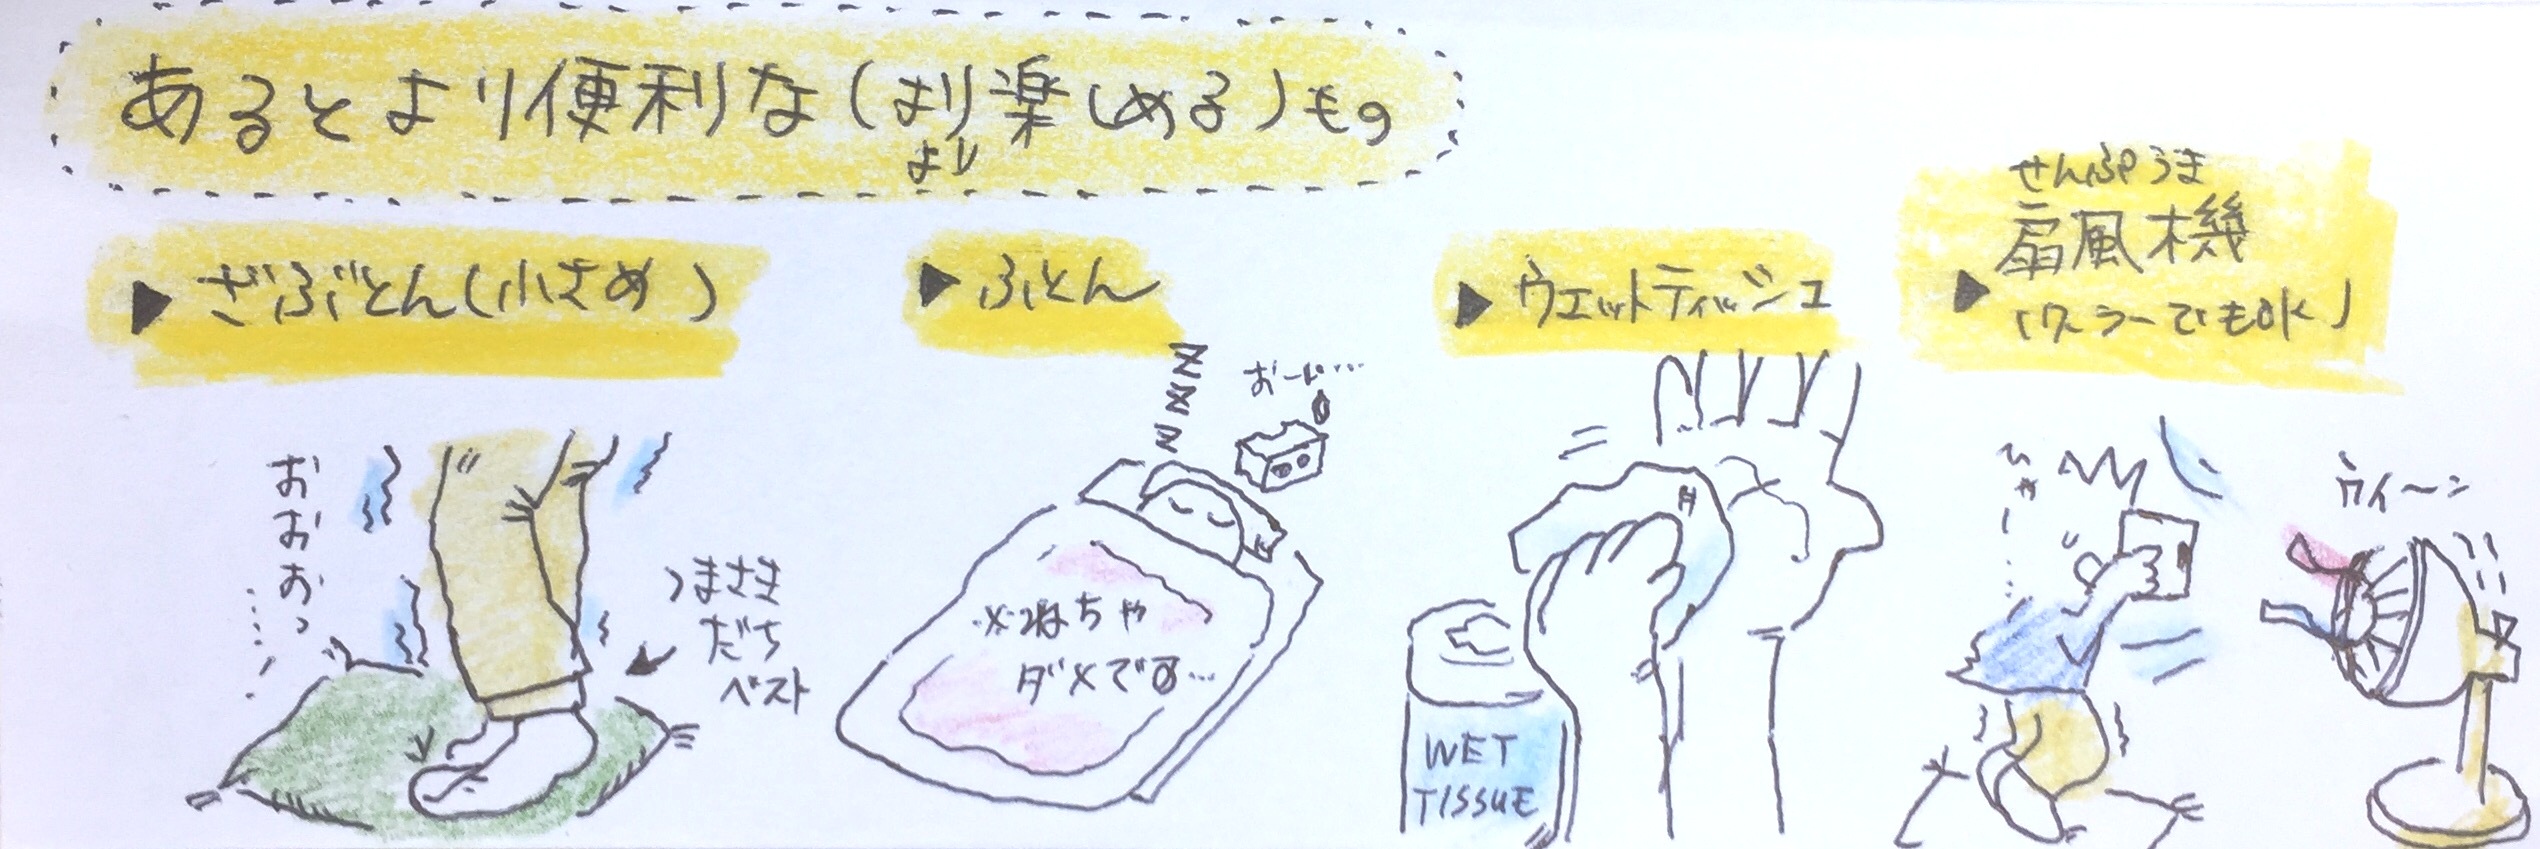 あるとより便利な(より楽しめる)もの
より
▶ざぶとん(小さめ)
▶ふとん
▶ウェットティッシュ
せんぷうき
▶扇風機
(クーラーでもOK)
おおおっ
つまさき
だち
ベスト
ZZZZ
おーい…
※ねちゃ
ダメです…
WET
TISSUE
ウィーン